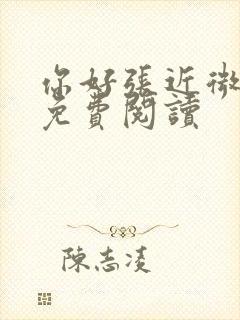 你好張近微
免費閱讀
陳志凌